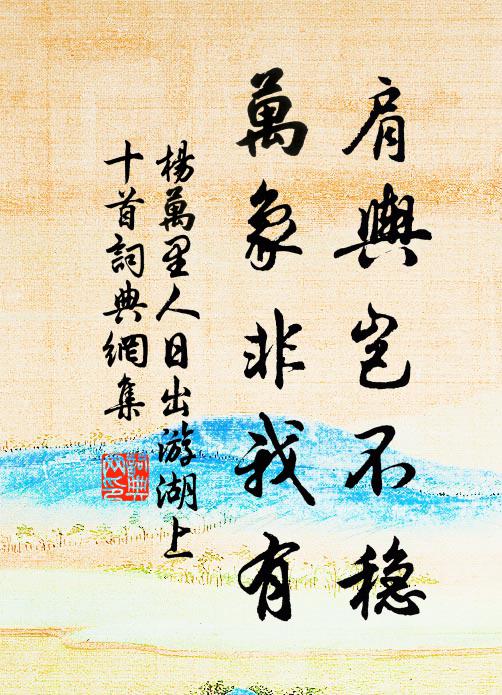 肩輿豈不穩
萬象非我有
楊萬里人日出游湖上
十首詞典網集